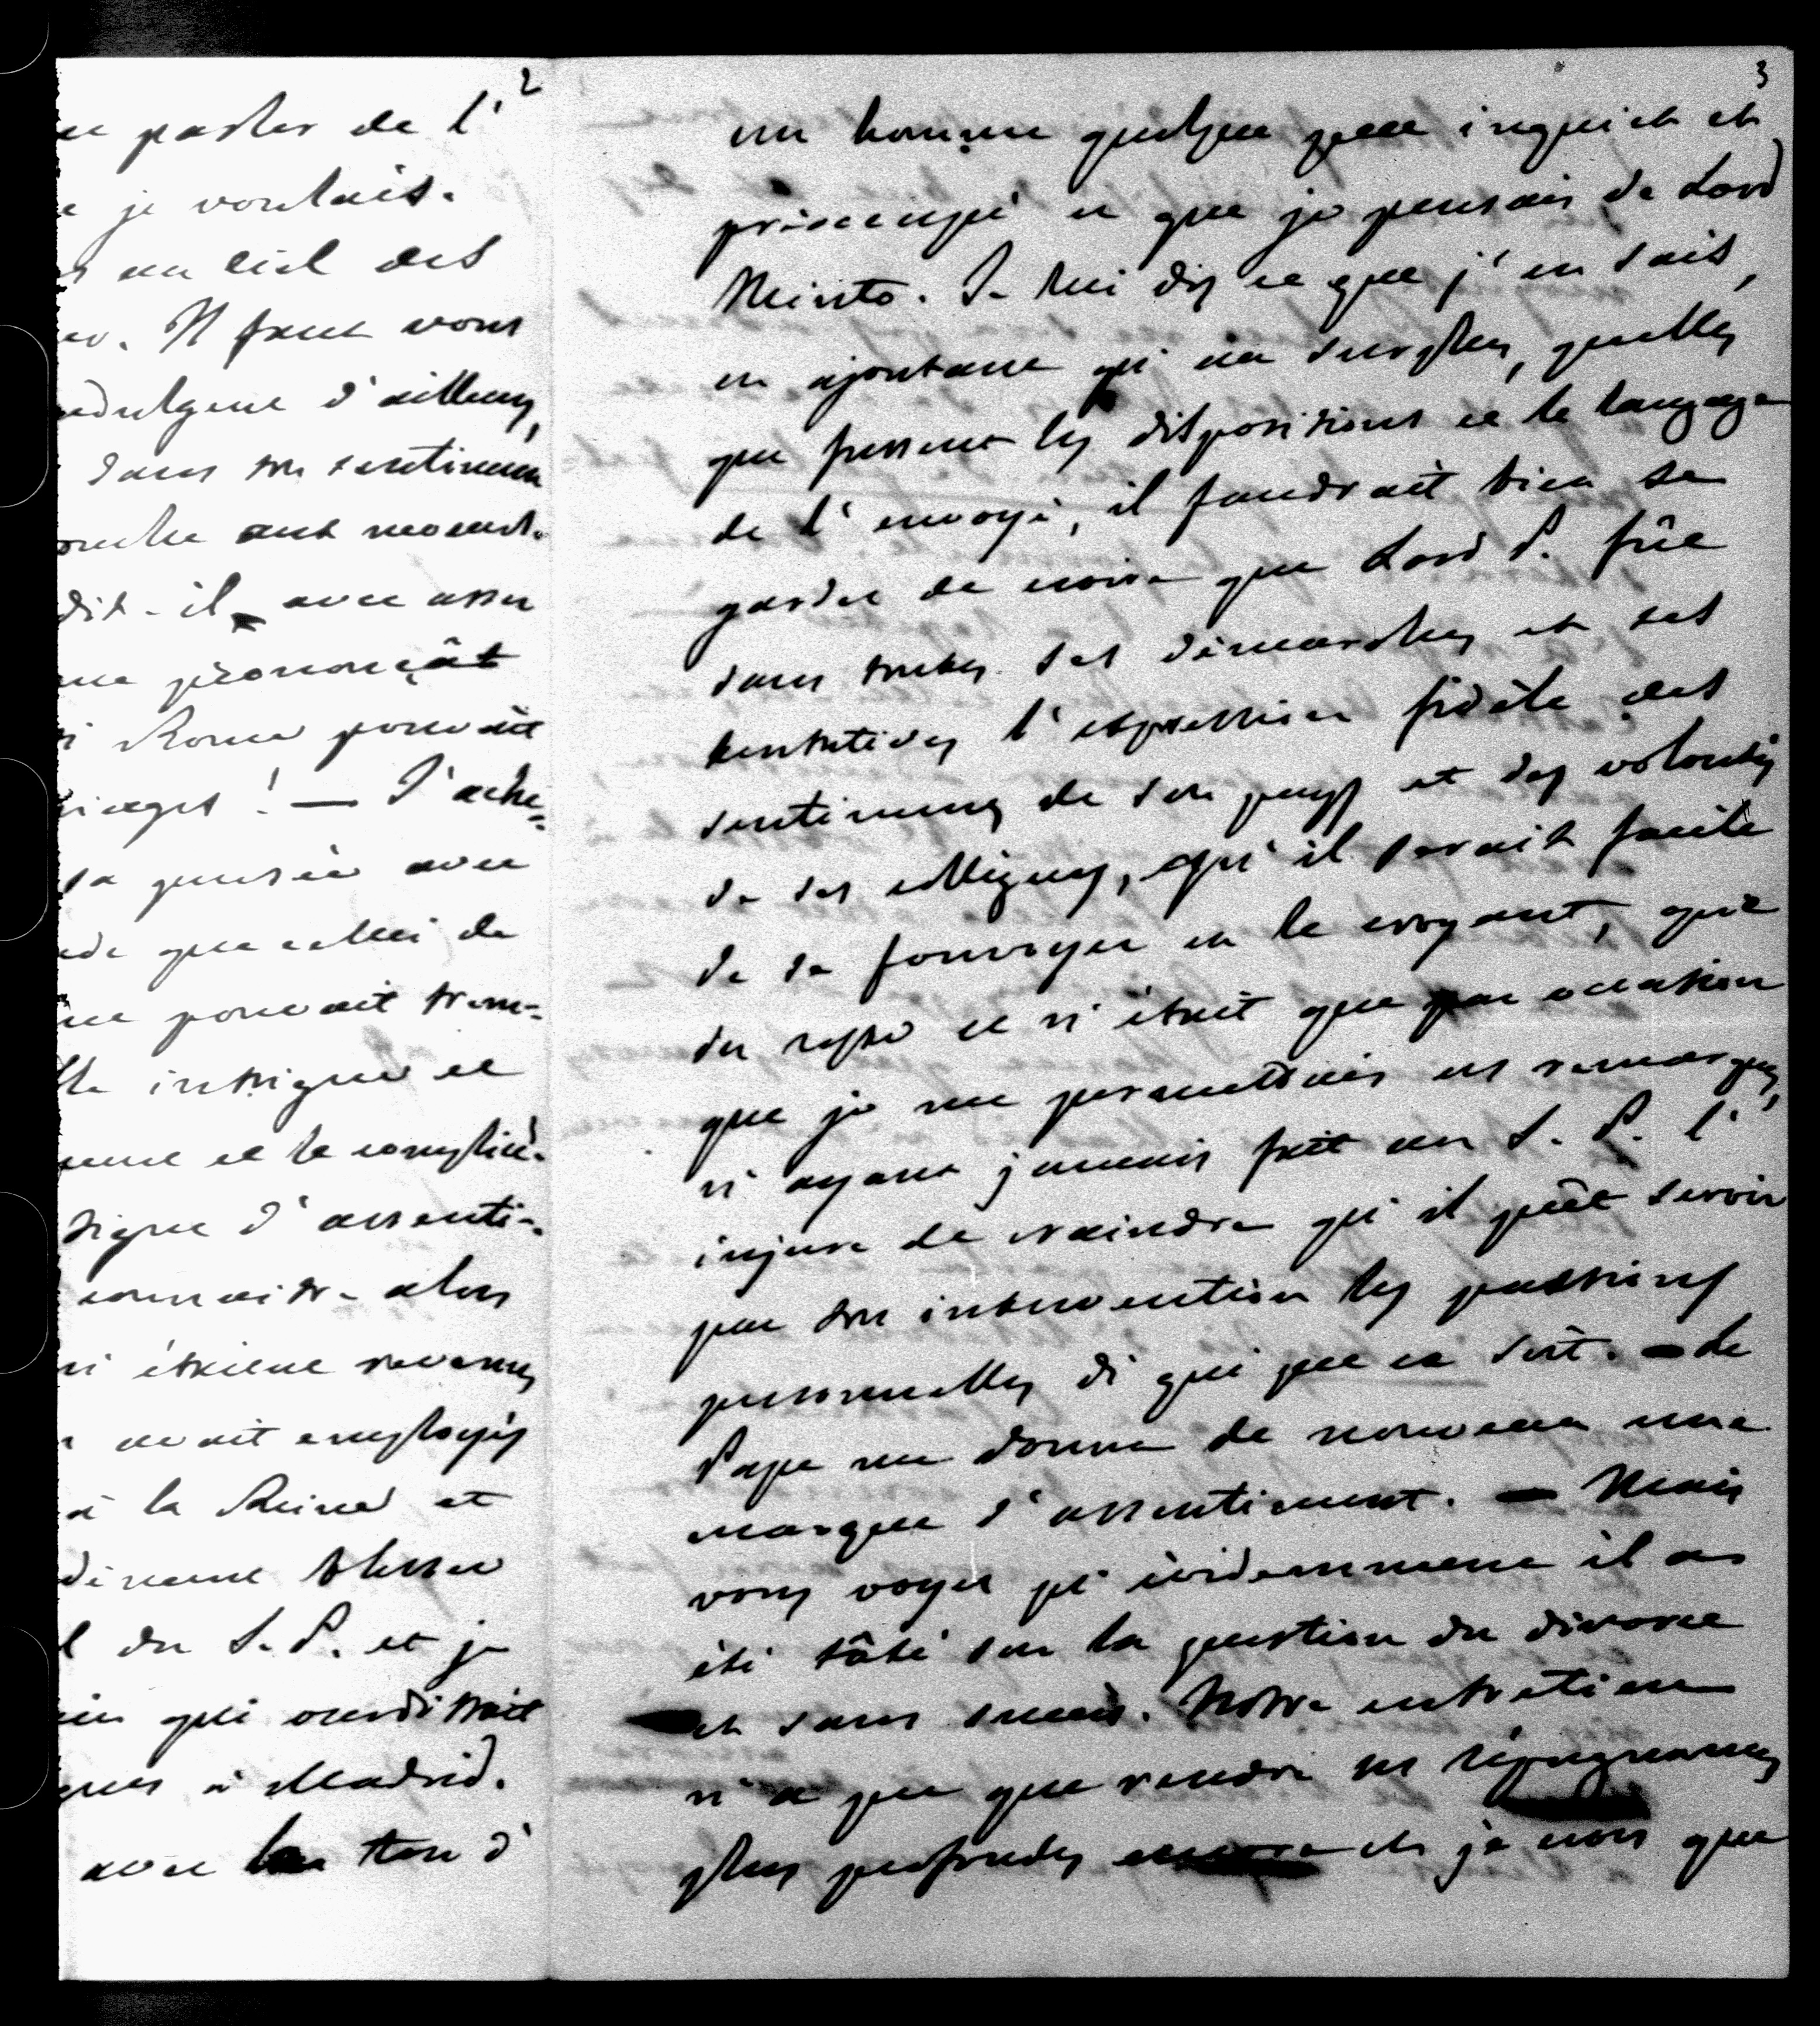 2
parler de l'
je voulais.
au ciel des
Il faut vous
d'ailleurs,
dans son sentiment
dit-il, avec assez
prononçât
Rome pouvait
! — J'ache-
sa pensée avec
que celui de
ne pouvait trem-
intrigue et
et le compliè-
signe d'assenti-
connaitre alors
étaient revenus
avait employés
à la Reine et
blesser
du S. P. et je
qui ourdirait
à Madrid.
avec un ton d'
3
un homme quelque peu inquiet et
préoccupé ce que je pensais de Lord
Minto. Je lui dis ce que j'en sais,
en ajoutant qu'au surplus, quelles
que fussent les dispositions et le langage
de l'envoyé, il faudrait bien se
garder de croire que Lord P. fût
dans toutes ses démarches et ses
tentatives l'expression fidèle des
sentimens de son pays et des volontés
de ses collègues, qu'il serait facile
de se fourvoyer en le croyant, que
du reste ce n'était que par occasion
que je me permettais ces remarques,
n'ayant jamais fait au S. P. l'
injure de craindre qu'il pût servir
par son intervention les passions
personnelles di qui que ce soit. — Le
Pape me donna de nouveau une
marque d'assentiment. — Mais
vous voyez qu'évidemment il a
été tâté sur la question du divorce
et sans succès. Notre entretien
n'a pu que rendre ses répugnances
plus profondes encore et je crois que